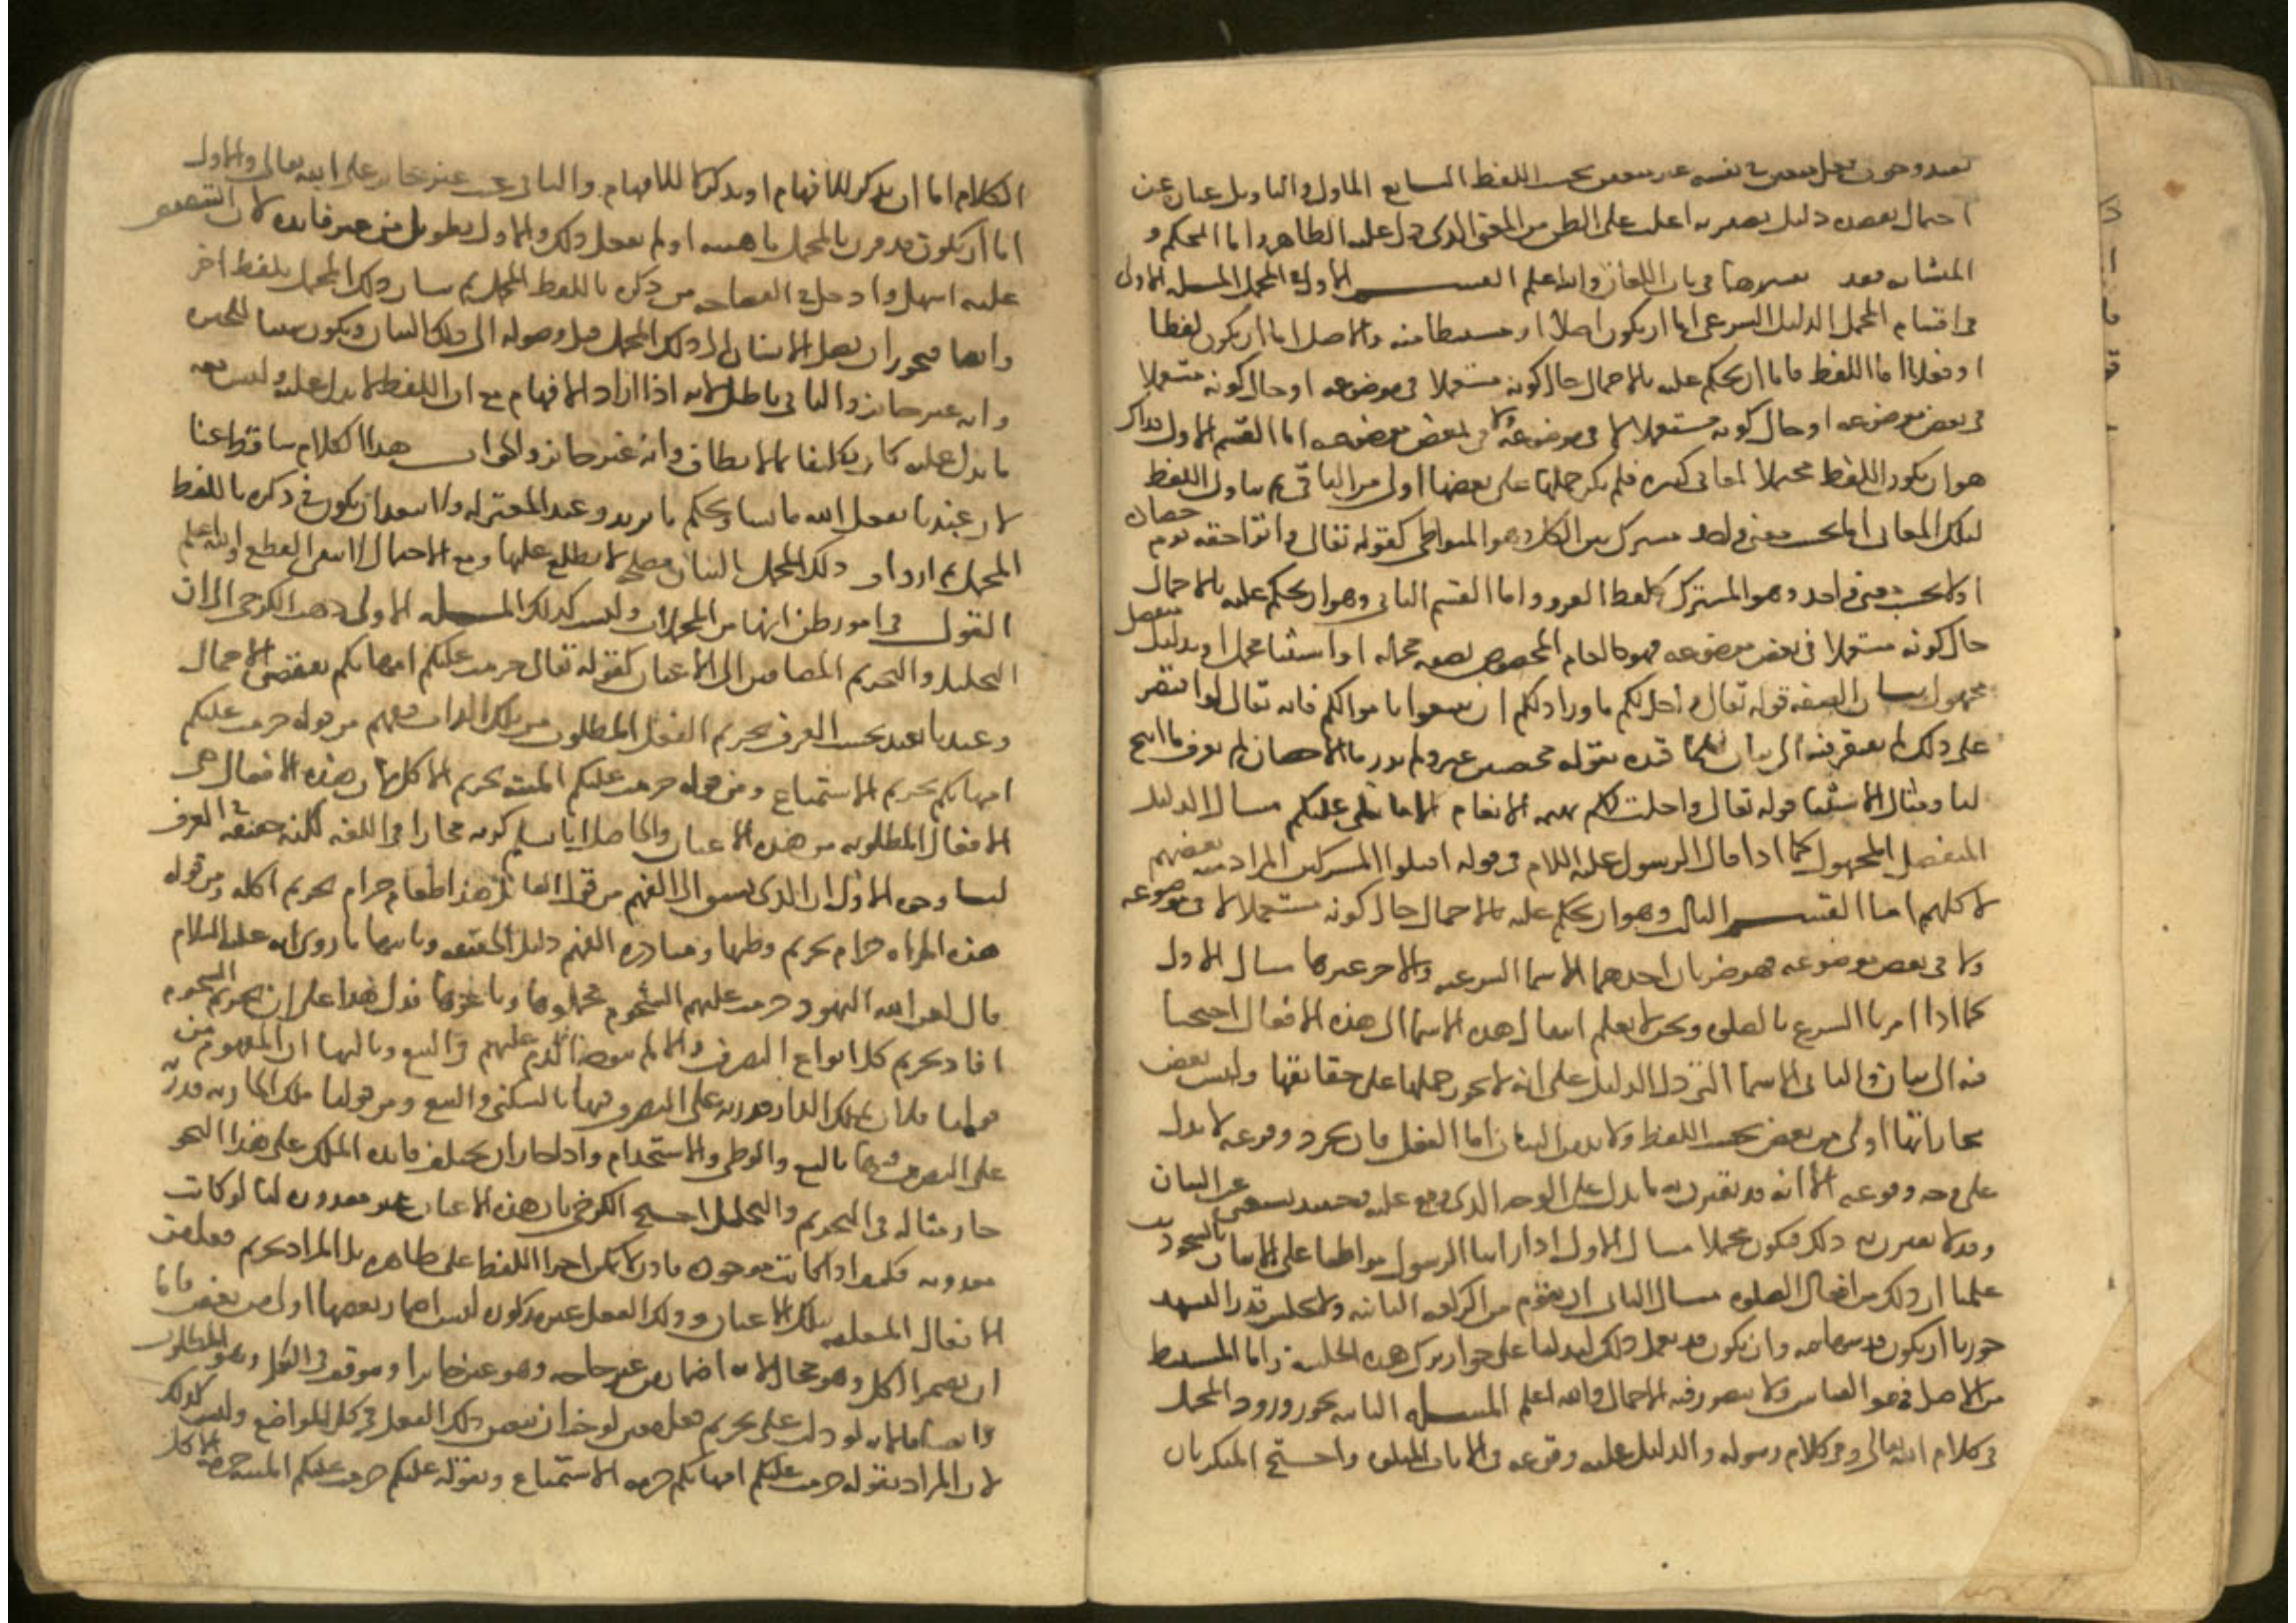 احتمال يعضده دليل يصير به اغلب على الظن من المعنى الذى دل عليه الظاهر واما المحكم و
المتشابه فقد تفسيرهما فى باب اللغات والله اعلم القسم الاول فى المجمل المسله الاولى
فى اقسام المجمل الدليل الشرعى اما ان يكون اصلا او مستنبطا منه والاصل اما ان يكون لفظا
او فعلا اما اللفظ فاما ان يحكم عليه بالاجمال حال كونه مستعملا فى موضوعه او حال كونه مستعملا
فى بعض موضوعه او حال كونه مستعملا لا فى موضوعه ولا فى بعض موضوعه اما القسم الاول فذاك
هو ان يكون اللفظ محتملا لمعانى كثيره فلم يكن حملها على بعضها اولى من الباقى ثم تناول اللفظ
لتلك المعانى اما بحسب معنى واحد مشترك بين الكل وهو المتواطى كقوله تعالى واتوا حقه يوم حصاده
او لا بحسب معنى واحد وهو المشترك كلفظ القرء واما القسم الثانى وهو ان يحكم عليه بالاجمال
حال كونه مستعملا فى بعض موضوعه فهو كالعام المخصوص بصفه مجمله او استثنا مجمل او بدليل منفصل
مجهول مثال الصفه قوله تعالى واحل لكم ما ورا ذلكم ان تبتغوا باموالكم فانه تعالى لو اقتصر
على ذلك لم يفتقر فيه الى بيان فلما قيده بقوله محصنين غير ولم ندر ما الاحصان لم نعرف ما ابيح
لنا ومثال الاستثنا قوله تعالى واحلت لكم بهيمه الانعام الا ما يتلى عليكم مثال الدليل
المنفصل المجهول كما اذا قال الرسول عليه السلام فى قوله اقتلوا المشركين المراد منه بعضهم
لا كلهم اما القسم الثالث وهو ان يحكم عليه بالاجمال حال كونه مستعملا لا فى موضوعه
ولا فى بعض موضوعه فهو ضربان احدهما الاسما الشرعيه والاخر غيرها مثال الاول
كما اذا امرنا الشرع بالصلوه ونحن لا نعلم انتقال هذه الاسما الى هذه الافعال احتجنا
فيه الى بيان والثانى الاسما التى دل الدليل على انه لا يجوز حملها على حقايقها وليس بعض
مجازاتها اولى من بعض بحسب اللفظ ولا بد من البيان اما الفعل فان مجرد وقوعه لا يدل
على وجه وقوعه الا انه قد يقترن به ما يدل على الوجه الذى وقع عليه فحينئذ يستغنى عن البيان
وقد لا يقترن به ذلك فيكون مجملا مثال الاول اذا راينا الرسول مواظبا على الاتيان بالسجود
علمنا ان ذلك من افعال الصلوه مثال الثانى ان يقوم من الركعه الثانيه ولا يجلس قدر التشهد
جوزنا ان يكون قد سها فيه وان يكون قد تعمد ذلك ليدلنا على جواز ترك هذه الجلسه واما المستنبط
من الاصل فهو القياس ولا يتصور فيه الاجمال والله اعلم المسله الثانيه يجوز ورود المجمل
فى كلام الله تعالى وفى كلام رسوله والدليل عليه وقوعه فى الايات المتلوه واحتج المنكر بان
الكلام اما ان يذكر للافهام او يذكر لا للافهام والثانى عبث غير جايز على الله تعالى والاول
اما ان يكون قد قرن بالمجمل ما يبينه او لم يفعل ذلك والاول تطويل من غير فايده لان التنصيص
عليه اسهل وادخل فى الفصاحه من ذكره باللفظ المجمل ثم بيان ذلك المجمل بلفظ اخر
وايضا فيجوز ان يصل الانسان الى ذلك المجمل قبل وصوله الى ذلك البيان ويكون سببا للحيره
وانه غير جايز والثانى باطل لانه اذا اراد الافهام مع ان اللفظ لا يدل عليه وليس معه
ما يدل عليه كان تكليفا بما لا يطاق وانه غير جايز والجواب هذا الكلام ساقط عنا
لان عندنا يفعل الله ما يشا ويحكم ما يريد وعند المعتزله ولا يبعد ان يكون فى ذكره باللفظ
المجمل ثم ارداف ذلك المجمل بالبيان مصلحه لا يطلع عليها ومع الاحتمال لا يبقى القطع والله اعلم
القول فى امور ظن انها من المجملات وليست كذلك المسله الاولى ذهب الكرخى الى ان
التحليل والتحريم المضافين الى الاعيان كقوله تعالى حرمت عليكم امهاتكم يقتضى الاجمال
وعندنا يفيد بحسب العرف تحريم الفعل المطلوب من تلك الذات فيفهم من قوله حرمت عليكم
امهاتكم تحريم الاستمتاع ومن قوله حرمت عليكم الميته تحريم الاكل لان هذه الافعال هى
الافعال المطلوبه من هذه الاعيان والحاصل انا نسلم كونه مجازا فى اللغه لكنه حقيقه فى العرف
لنا وجوه الاول ان الذى يسبق الى الفهم من قول القائل هذا طعام حرام تحريم اكله ومن قوله
هذه المراه حرام تحريم وطيها ومبادره الفهم دليل الحقيقه وثانيها ما روى انه عليه السلام
قال لعن الله اليهود حرمت عليهم الشحوم فجملوها وباعوها فدل هذا على ان تحريم الشحوم
افاد تحريم كل انواع التصرف والا لم يتوجه الذم عليهم فى البيع وثالثها ان المفهوم من
قولنا فلان يملك الدار قدرته على التصرف فيها بالسكنى والبيع ومن قولنا ملك الجاريه قدرته
على التصرف فيها بالبيع والوطى والاستخدام واذا جاز ان يختلف فايده الملك على هذا النحو
جاز مثاله فى التحريم والتحليل احتج الكرخى بان هذه الاعيان غير مقدوره لنا لو كانت
معدومه فكيف اذا كانت موجوده فاذن لا يمكن اجرا اللفظ على ظاهره بل المراد تحريم فعل من
الافعال المتعلقه بتلك الاعيان وذلك الفعل غير مذكور وليس اضمار بعضها اولى من بعض فاما
ان يضمر الكل وهو محال لانه اضمار من غير حاجه وهو غير جايز او يتوقف فى الكل وهو المطلوب
وايضا فالايه لو دلت على تحريم فعل معين لوجب ان يتعين ذلك الفعل فى كل المواضع وليس كذلك
لان المراد بقوله حرمت عليكم امهاتكم حرمه الاستمتاع وبقوله عليكم حرمت عليكم الميته حرمه الاكل